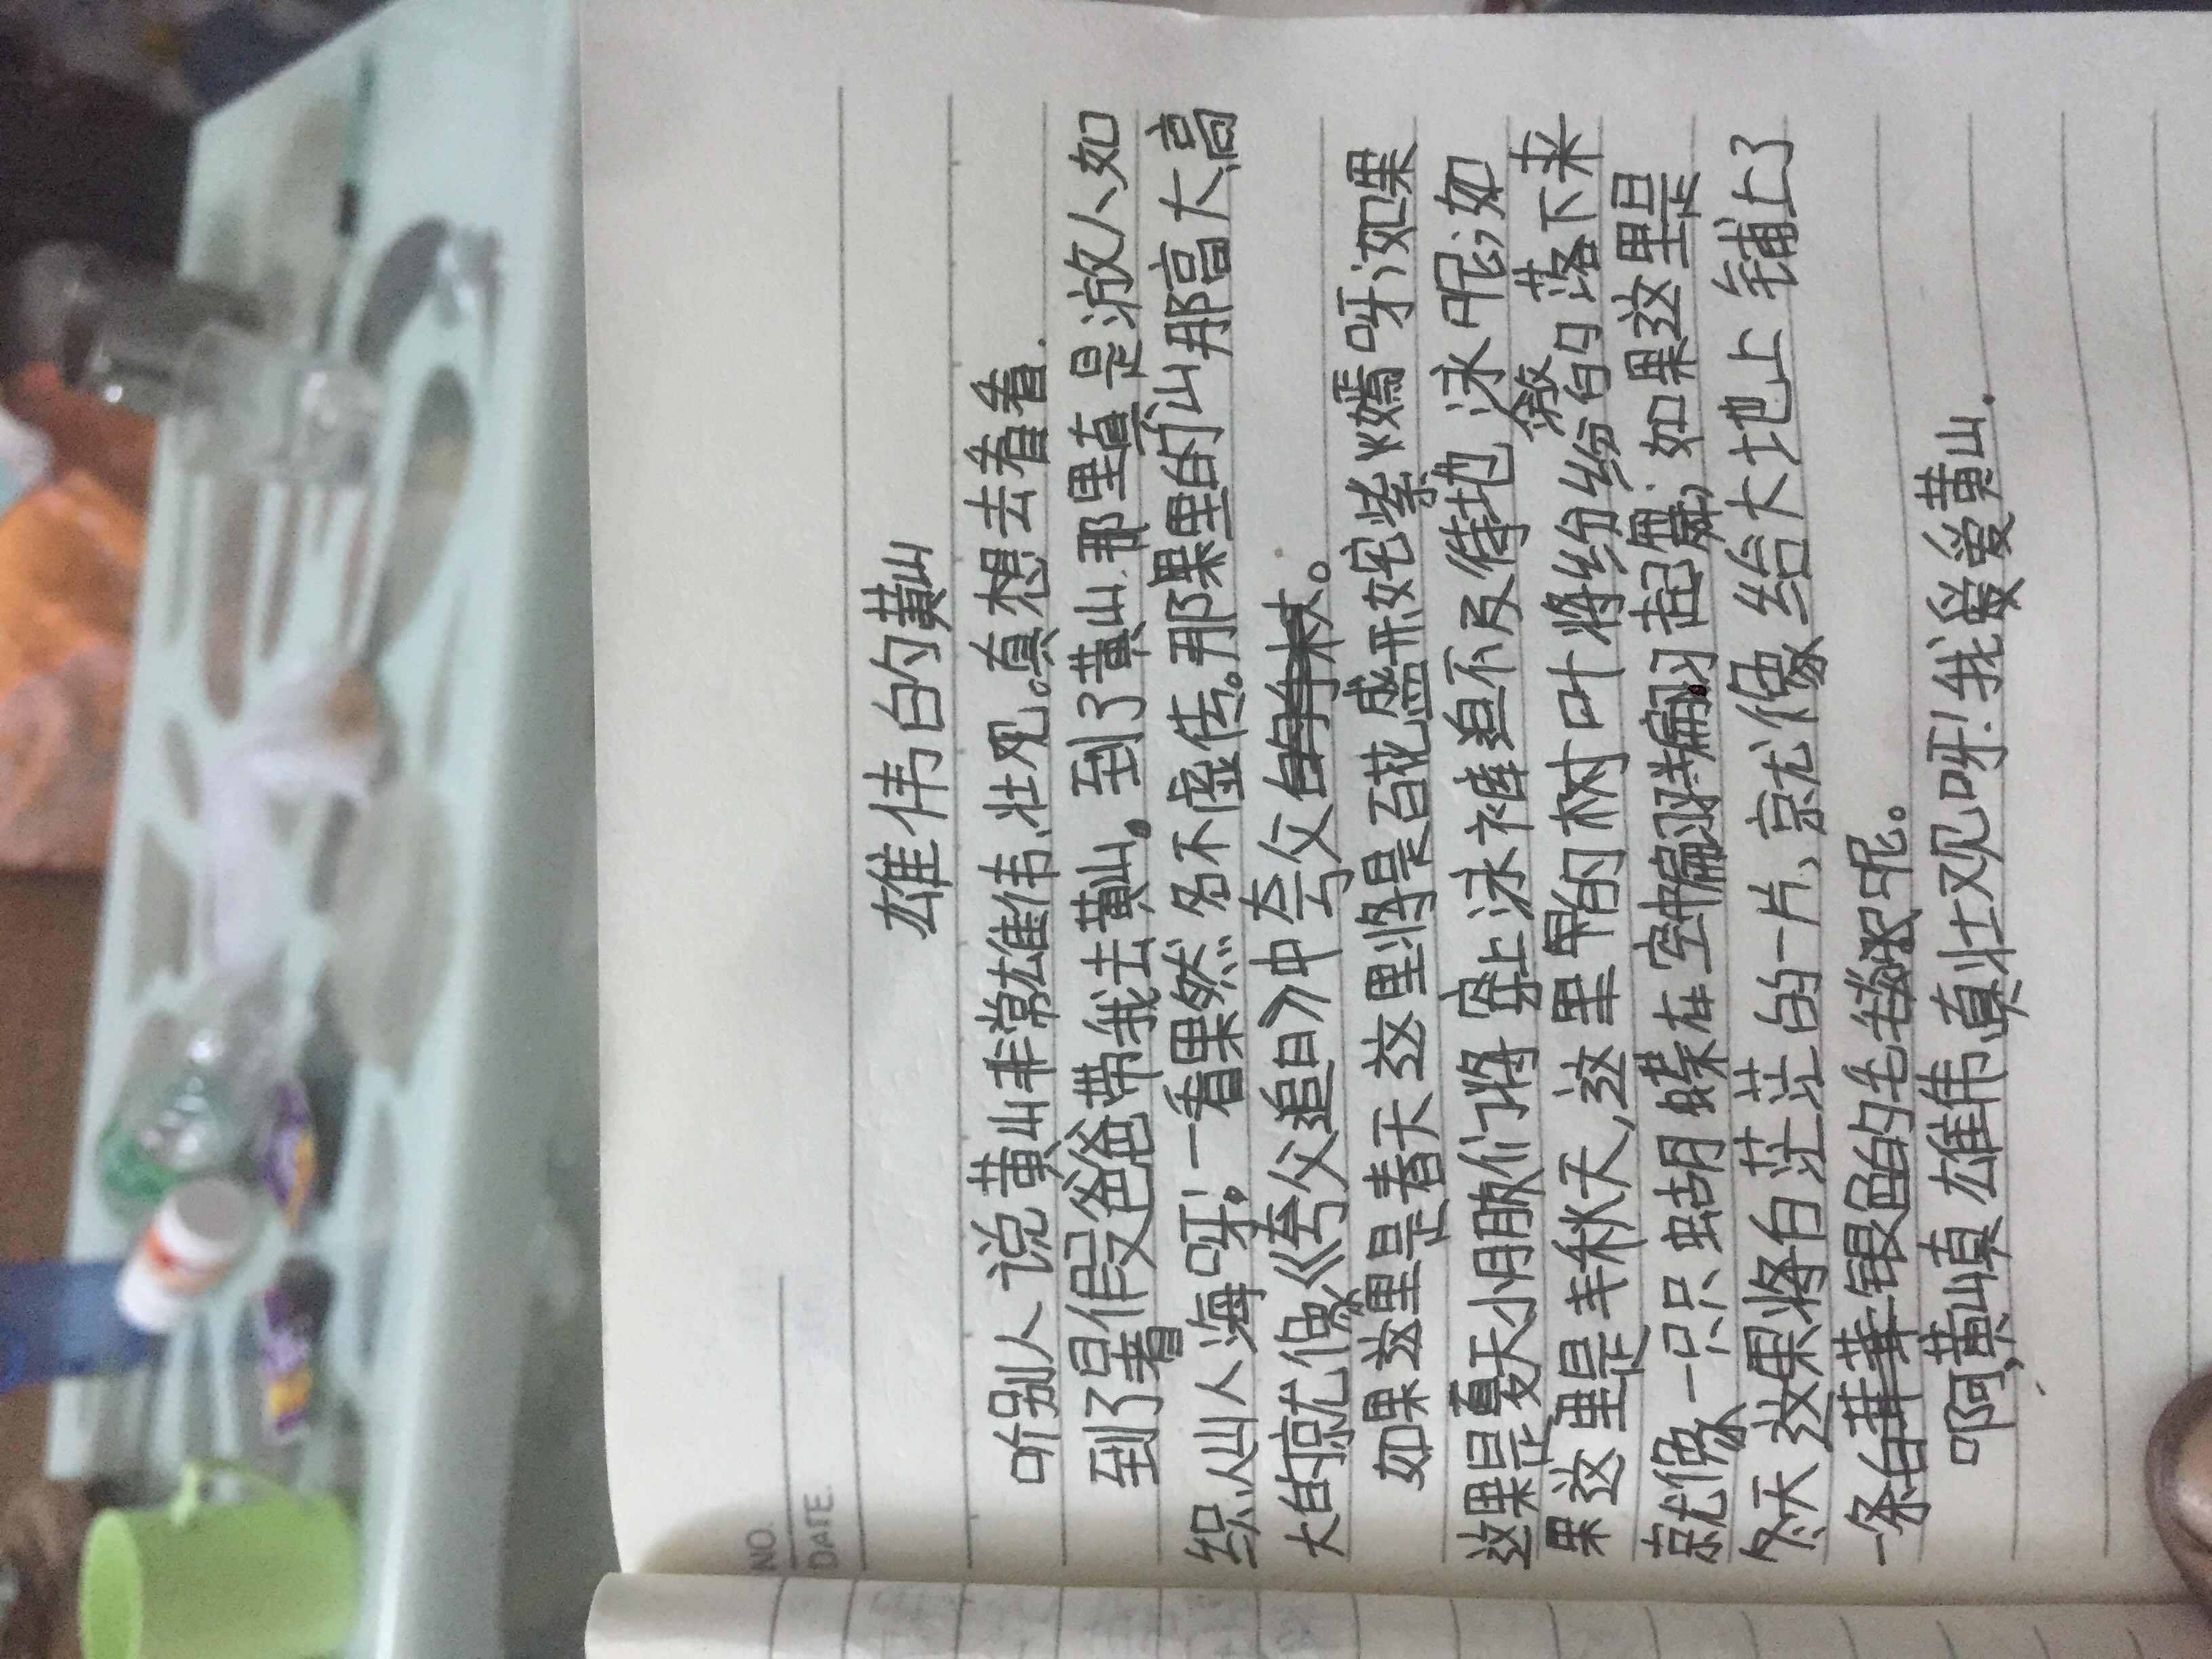 NO.
DATE.
雄伟的黄山
听别人说黄山非常雄伟、壮观。真想去看看.
到了暑假爸爸带我去黄山。到了黄山.那里真是游人如
织.人山人海呀!一看果然名不虚传。那里的山那高大,高
大的就像《夸父追日》中夸父。
如果这里是春天这里将是百花盛开姹紫嫣呀;如果
这里是夏天小朋友们将穿上泳裤迫不及待地泳呢;如
果这里是丰秋天,这里的树叶将纷纷纷的落下来
就像一只只蝴蝶在空中翩翩起舞;如果这里是
冬天这里将白茫茫的一片、就像给大地上铺上了
一条白银色的毛毯呢。
啊,黄山真雄伟,真壮观呀!我爱爱黄山.